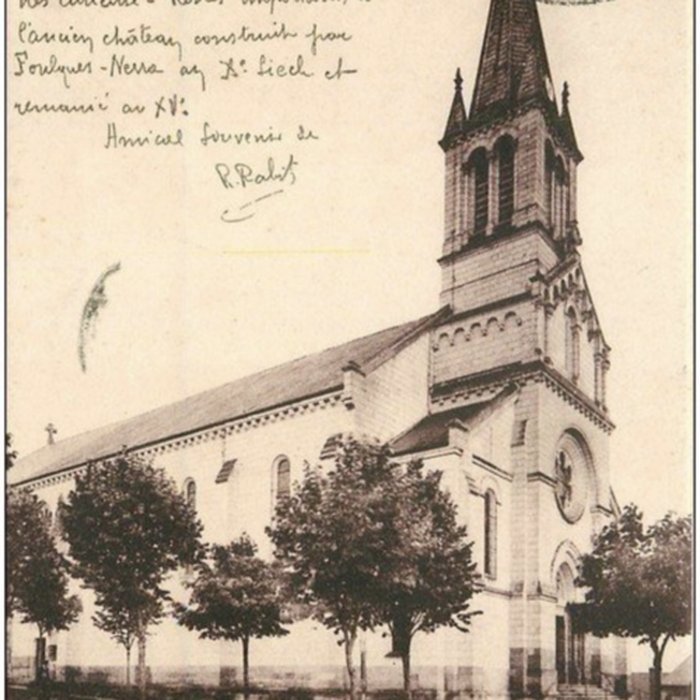 l'ancien château construit par
Foulques-Nerra au Xe Siecle et
remanié au XVe
Amical Souvenir de
R. Rabit